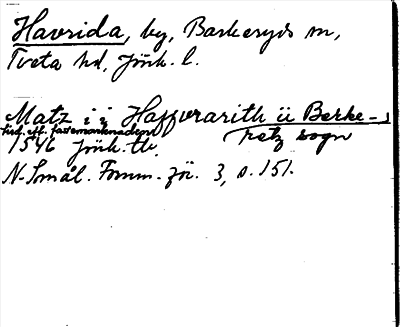 Havrida, by, Barkeryds sn,
Tveta hd, Jönk. l.
Matz i Haffvarith ii Berke-
retz sogn
1546 Jönk. tb.
N. Smål. Fornm. för. 3, s. 151.